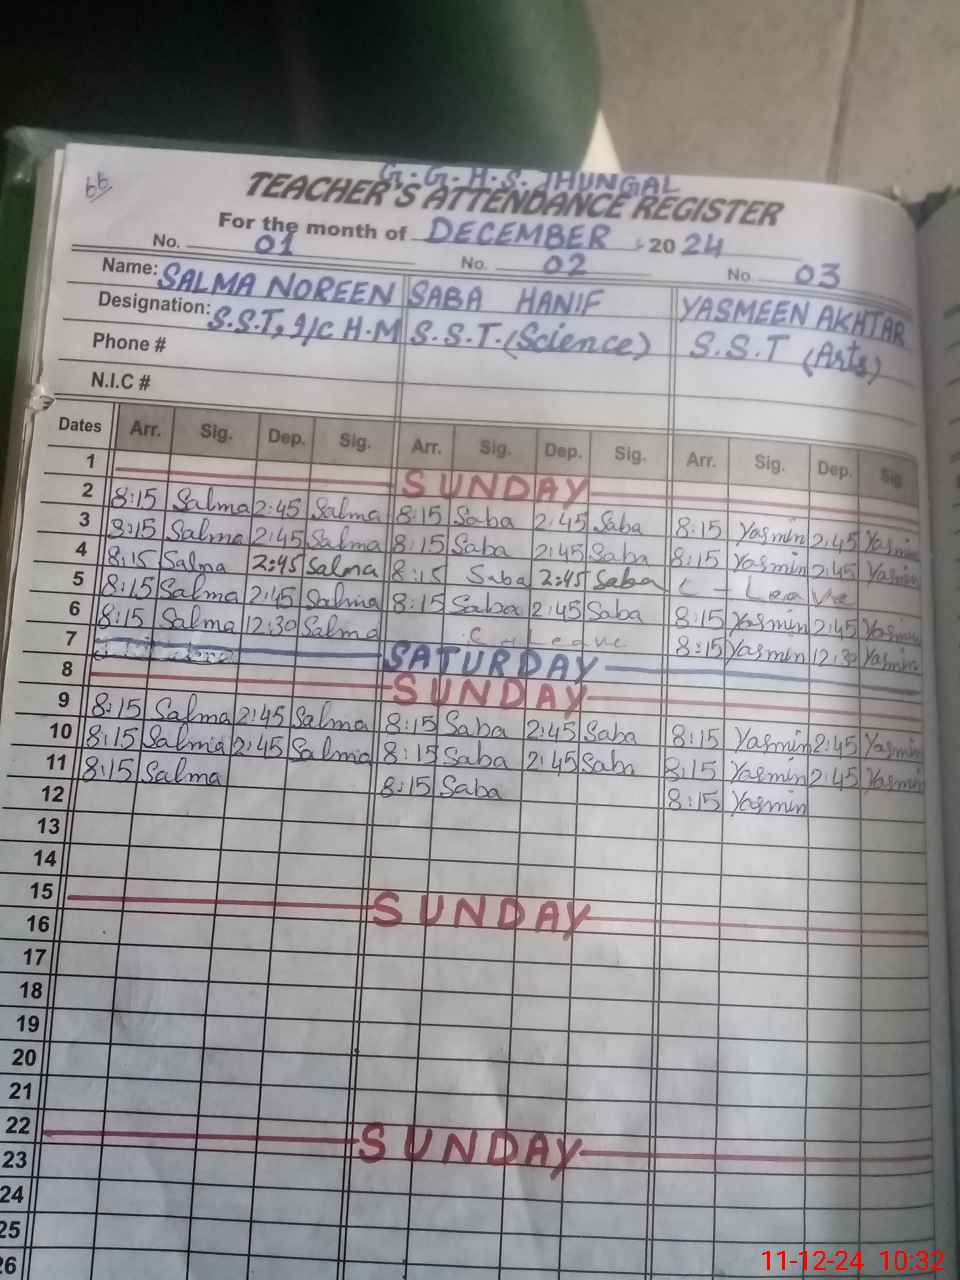 66
G.G.H.S. JHUNGAL
TEACHER'S ATTENDANCE REGISTER
For the month of DECEMBER 2024
No. 01 No. 02 No. 03
Name: SALMA NOREEN SABA HANIF YASMEEN AKHTAR
Designation: S.S.T, I/C H.M S.S.T. (Science) S.S.T (Arts)
Phone #
N.I.C #
Dates Arr. Sig. Dep. Sig. Arr. Sig. Dep. Sig. Arr. Sig. Dep. Sig
1 SUNDAY
2 8:15 Salma 2:45 Salma 8:15 Saba 2:45 Saba 8:15 Yasmin 2:45 Yasmin
3 8:15 Salma 2:45 Salma 8:15 Saba 2:45 Saba 8:15 Yasmin 2:45 Yasmin
4 8:15 Salma 2:45 Salma 8:15 Saba 2:45 Saba C - Leave
5 8:15 Salma 2:45 Salma 8:15 Saba 2:45 Saba 8:15 Yasmin 2:45 Yasmin
6 8:15 Salma 12:30 Salma C - Leave 8:15 Yasmin 12:30 Yasmin
7 SATURDAY
8 SUNDAY
9 8:15 Salma 2:45 Salma 8:15 Saba 2:45 Saba 8:15 Yasmin 2:45 Yasmin
10 8:15 Salma 2:45 Salma 8:15 Saba 2:45 Saba 8:15 Yasmin 2:45 Yasmin
11 8:15 Salma 8:15 Saba 8:15 Yasmin
12
13
14
15 SUNDAY
16
17
18
19
20
21
22 SUNDAY
23
24
25
26
11-12-24 10:32